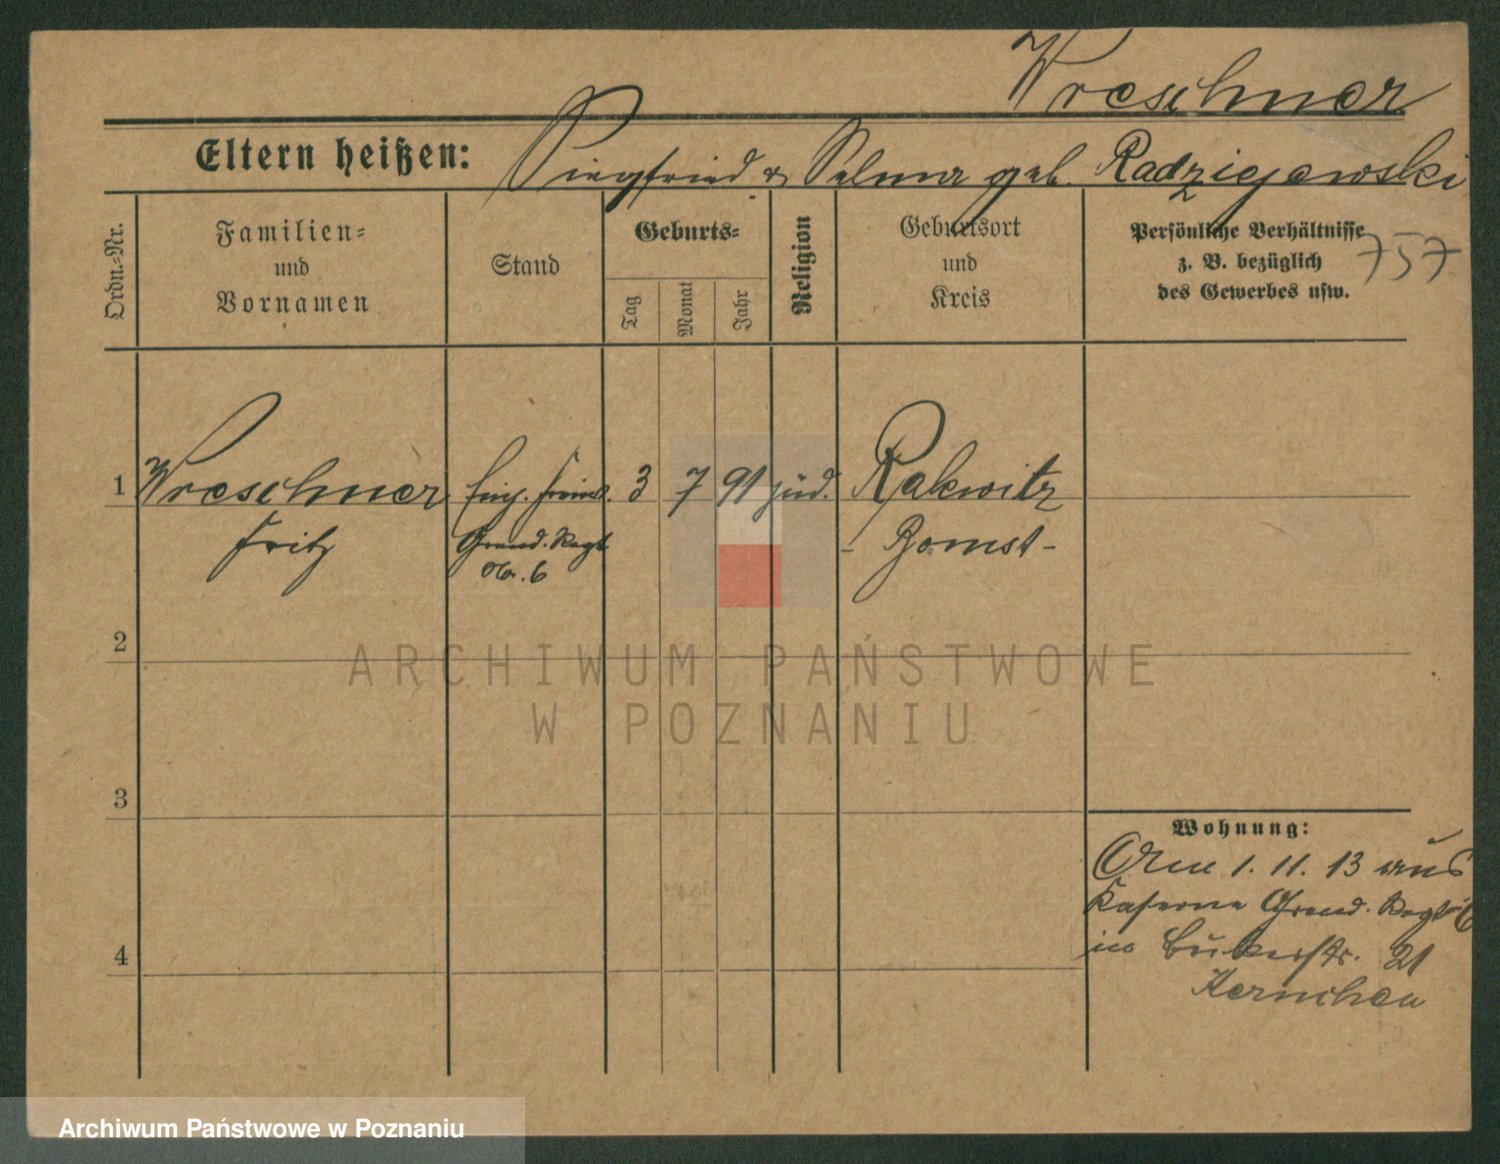 Wreschner
Eltern heißen: Siegfried & Selma geb. Radziejewski
Ordn.-Nr.
Familien-
und
Vornamen
Stand
Geburts-
Tag
Monat
Jahr
Religion
Geburtsort
und
Kreis
Persönliche Verhältnisse
z. B. bezüglich
des Gewerbes usw.
757
1 Wreschner Einj. Freiw. 3 7 91 jüd. Rakwitz
Fritz Grend. Regt - Bomst -
No. 6
2
3
4
Wohnung:
Am 1. 11. 13 aus
Kaserne Grend. Regt 6
in Bukerstr. 21
ARCHIWUM PAŃSTWOWE
W POZNANIU
Archiwum Państwowe w Poznaniu